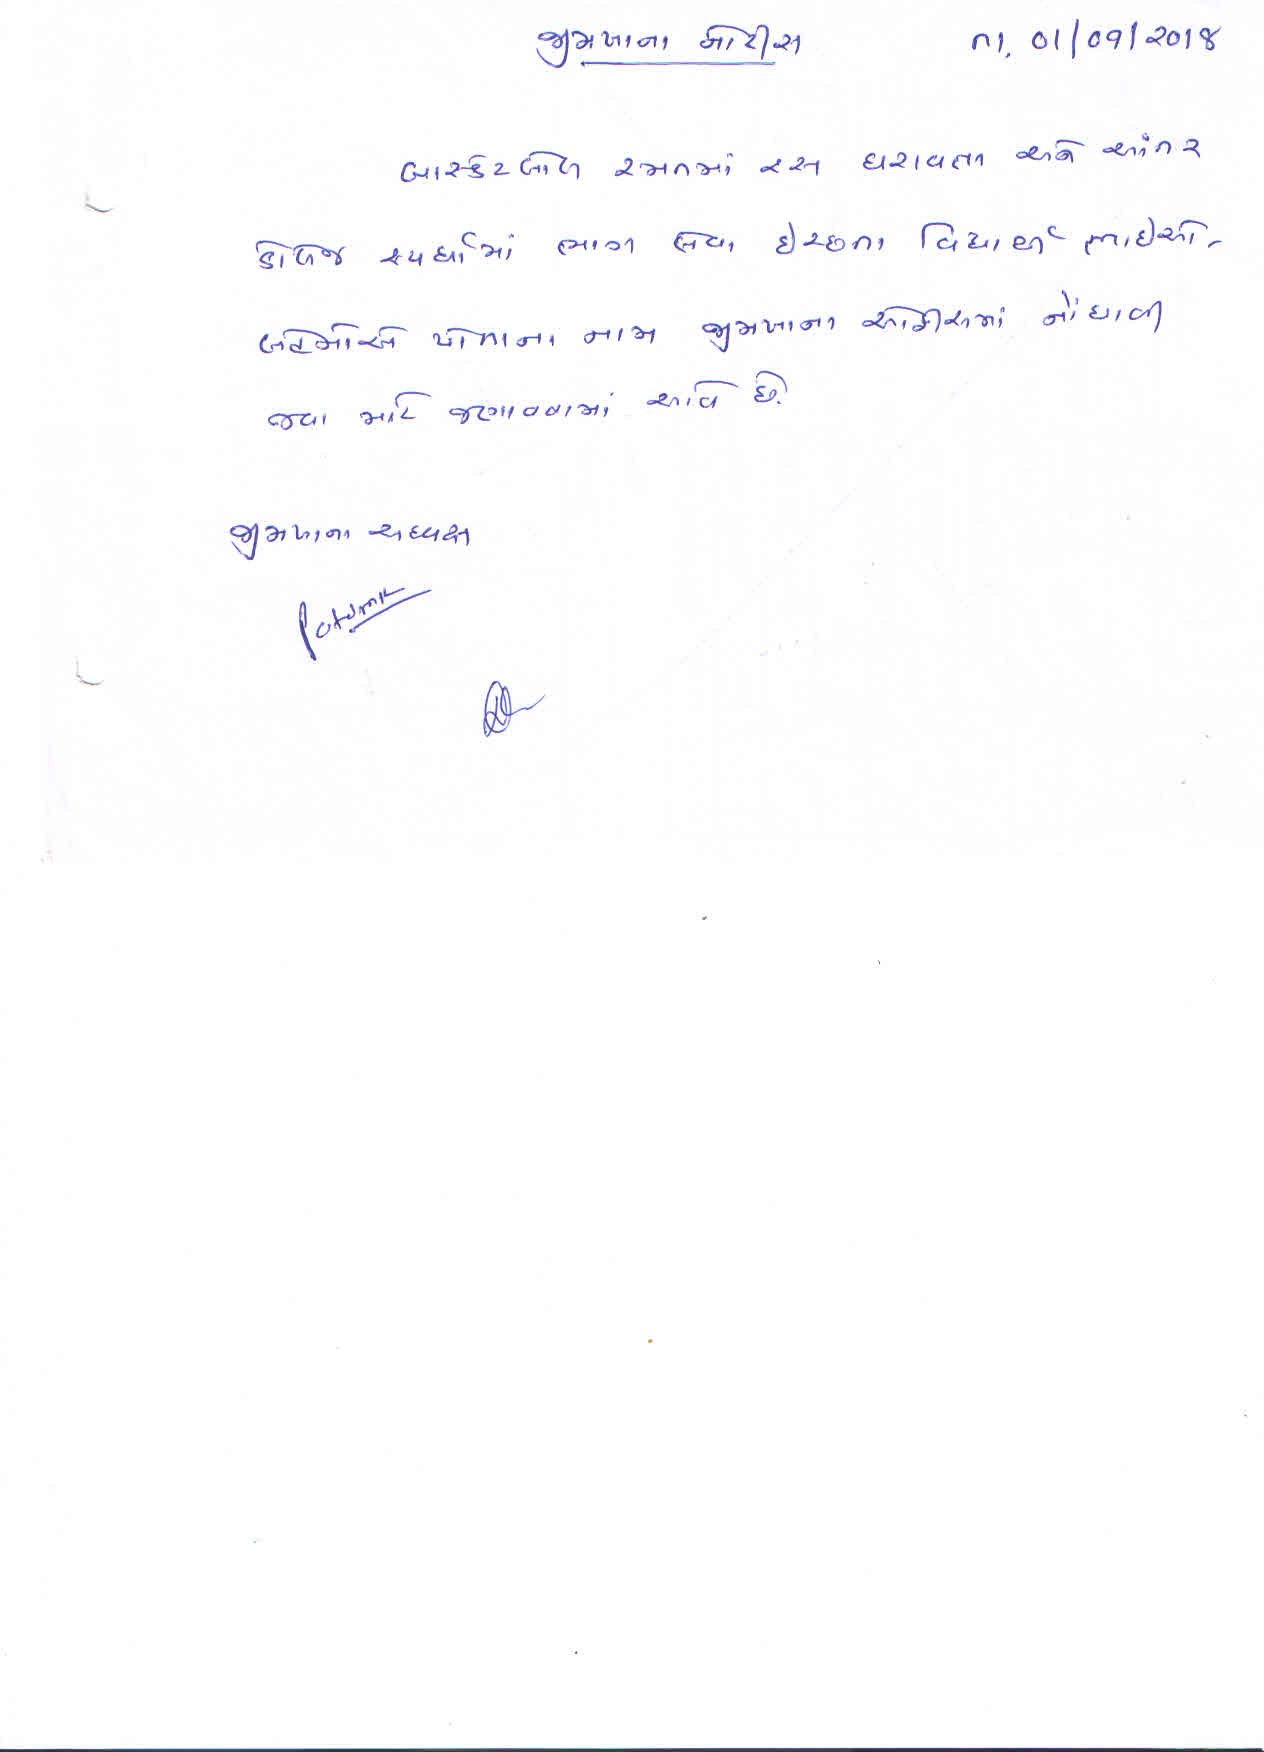 જીમખાના નોટીસ તા. 01/09/2018
બાસ્કેટબોલ રમતમાં રસ ધરાવતા અને આંતર
કોલેજ સ્પર્ધામાં ભાગ લેવા ઇચ્છતા વિદ્યાર્થી ભાઇઓ-
બહેનોએ પોતાના નામ જીમખાના ઓફીસમાં નોંધાવી
જવા માટે જણાવવામાં આવે છે.
જીમખાના અધ્યક્ષ